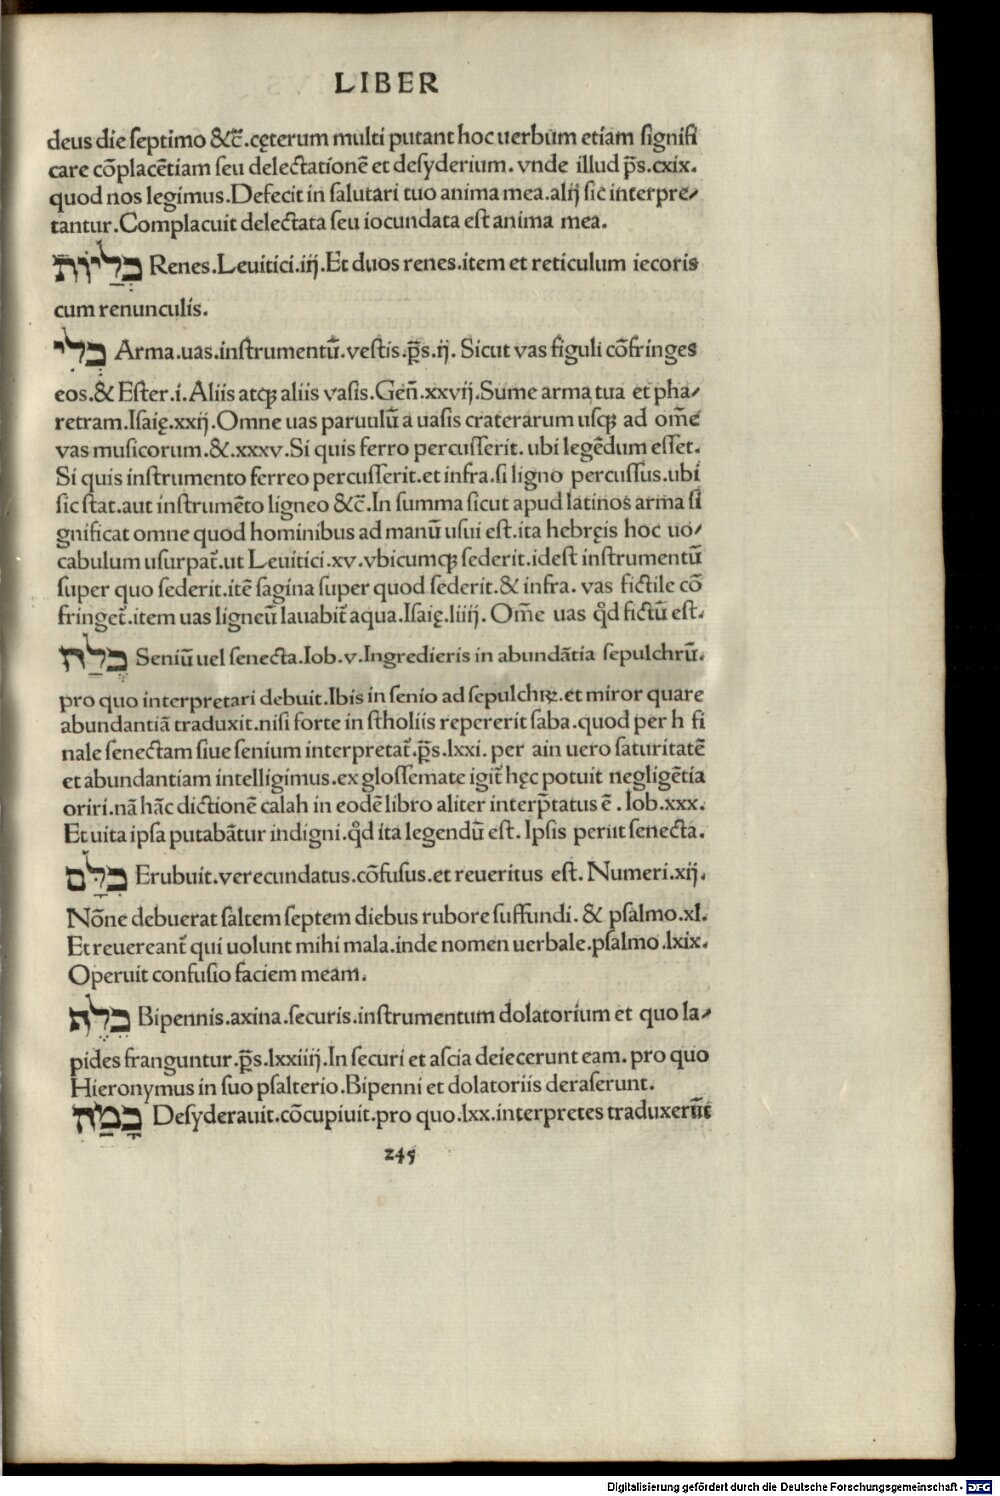 LIBER
deus die ſeptimo &c̄. cęterum multi putant hoc uerbum etiam ſignifi
care cōplacētiam ſeu delectationē et deſyderium. vnde illud p̄s. cxix.
quod nos legimus. Defecit in ſalutari tuo anima mea. alij ſic interpre⸗
tantur. Complacuit delectata ſeu iocundata eſt anima mea.
כְּלַיּוֹת Renes. Leuitici. iij. Et duos renes. item et reticulum iecoris
cum renunculis.
כְּלִי Arma. uas. inſtrumentū. veſtis. p̄s. ij. Sicut vas figuli cōfringes
eos. & Eſter. i. Aliis atqꝫ aliis vaſis. Gen̄. xxvij. Sume arma tua et pha⸗
retram. Iſaię. xxij. Omne uas paruulū a uaſis craterarum uſqꝫ ad om̄e
vas muſicorum. &. xxxv. Si quis ferro percuſſerit. ubi legēdum eſſet.
Si quis inſtrumento ferreo percuſſerit. et infra. ſi ligno percuſſus. ubi
ſic ſtat. aut inſtrumēto ligneo &c̄. In ſumma ſicut apud latinos arma ſi
gnificat omne quod hominibus ad manū uſui eſt. ita hebręis hoc uo⸗
cabulum uſurpat̄. ut Leuitici. xv. vbicumqꝫ ſederit. ideſt inſtrumentū
ſuper quo ſederit. itē ſagina ſuper quod ſederit. & infra. vas fictile cō
fringet̄. item uas ligneū lauabit̄ aqua. Iſaię. liiij. Om̄e uas qd̄ fictū eſt.
כֶּלַח Seniū uel ſenecta. Iob. v. Ingredieris in abundātia ſepulchrū.
pro quo interpretari debuit. Ibis in ſenio ad ſepulchꝝ. et miror quare
abundantiā traduxit. niſi forte in ſtholiis repererit ſaba. quod per h fi
nale ſenectam ſiue ſenium interpretat̄. p̄s. lxxi. per ain uero ſaturitatē
et abundantiam intelligimus. ex gloſſemate igit̄ hęc potuit negligētia
oriri. nā hāc dictionē calah in eodē libro aliter interp̄tatus ē. Iob. xxx.
Et uita ipſa putabātur indigni. qd̄ ita legendū eſt. Ipſis periit ſenecta.
כָּלַם Erubuit. verecundatus. cōfuſus. et reueritus eſt. Numeri. xij.
Nōne debuerat ſaltem ſeptem diebus rubore ſuffundi. & pſalmo. xl.
Et reuereant̄ qui uolunt mihi mala. inde nomen uerbale. pſalmo. lxix.
Operuit confuſio faciem meam.
כֵּלֶף Bipennis. axina. ſecuris. inſtrumentum dolatorium et quo la⸗
pides franguntur. p̄s. lxxiiij. In ſecuri et aſcia deiecerunt eam. pro quo
Hieronymus in ſuo pſalterio. Bipenni et dolatoriis deraſerunt.
כָּמַהּ Deſyderauit. cōcupiuit. pro quo. lxx. interpretes traduxerūt
245
Digitalisierung gefördert durch die Deutsche Forschungsgemeinschaft - DFG